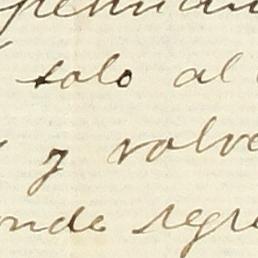 solo al
y volve
onde regre